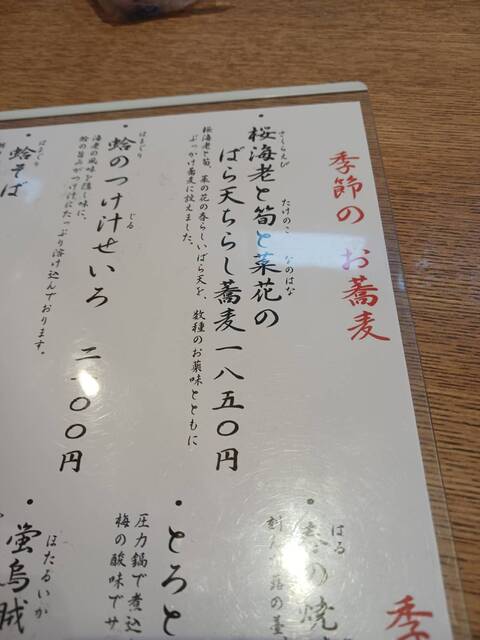 季節の お蕎麦
・桜海老と筍と菜花の
さくらえび
たけのこ
なのはな
ばら天ちらし蕎麦一八五〇円
桜海老と筍、菜の花の春らしいばら天を、数種のお薬味とともに
ぶっかけ蕎麦に設えました。
・蛤のつけ汁せいろ 二一〇〇円
はまぐり
じる
海老の風味を隠し味に、
蛤の旨みがつけ汁にたっぷり溶け込んでおります。
・蛤そば
はまぐり
季
・春の焼
はる
・とろと
圧力鍋で煮込
梅の酸味でサ
・蛍烏賊
ほたるいか